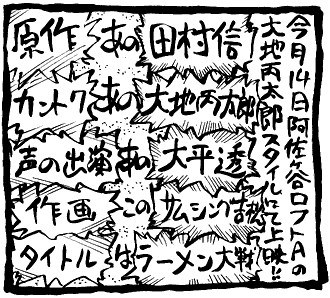 今月14日阿佐ヶ谷ロフトAの
大地丙太郎スタイルにて上映!!
原作 あの 田村信
カントク あの 大地丙太郎
声の出演 あの 大平透
作画 この サムシング吉松
タイトル は ラーメン大戦